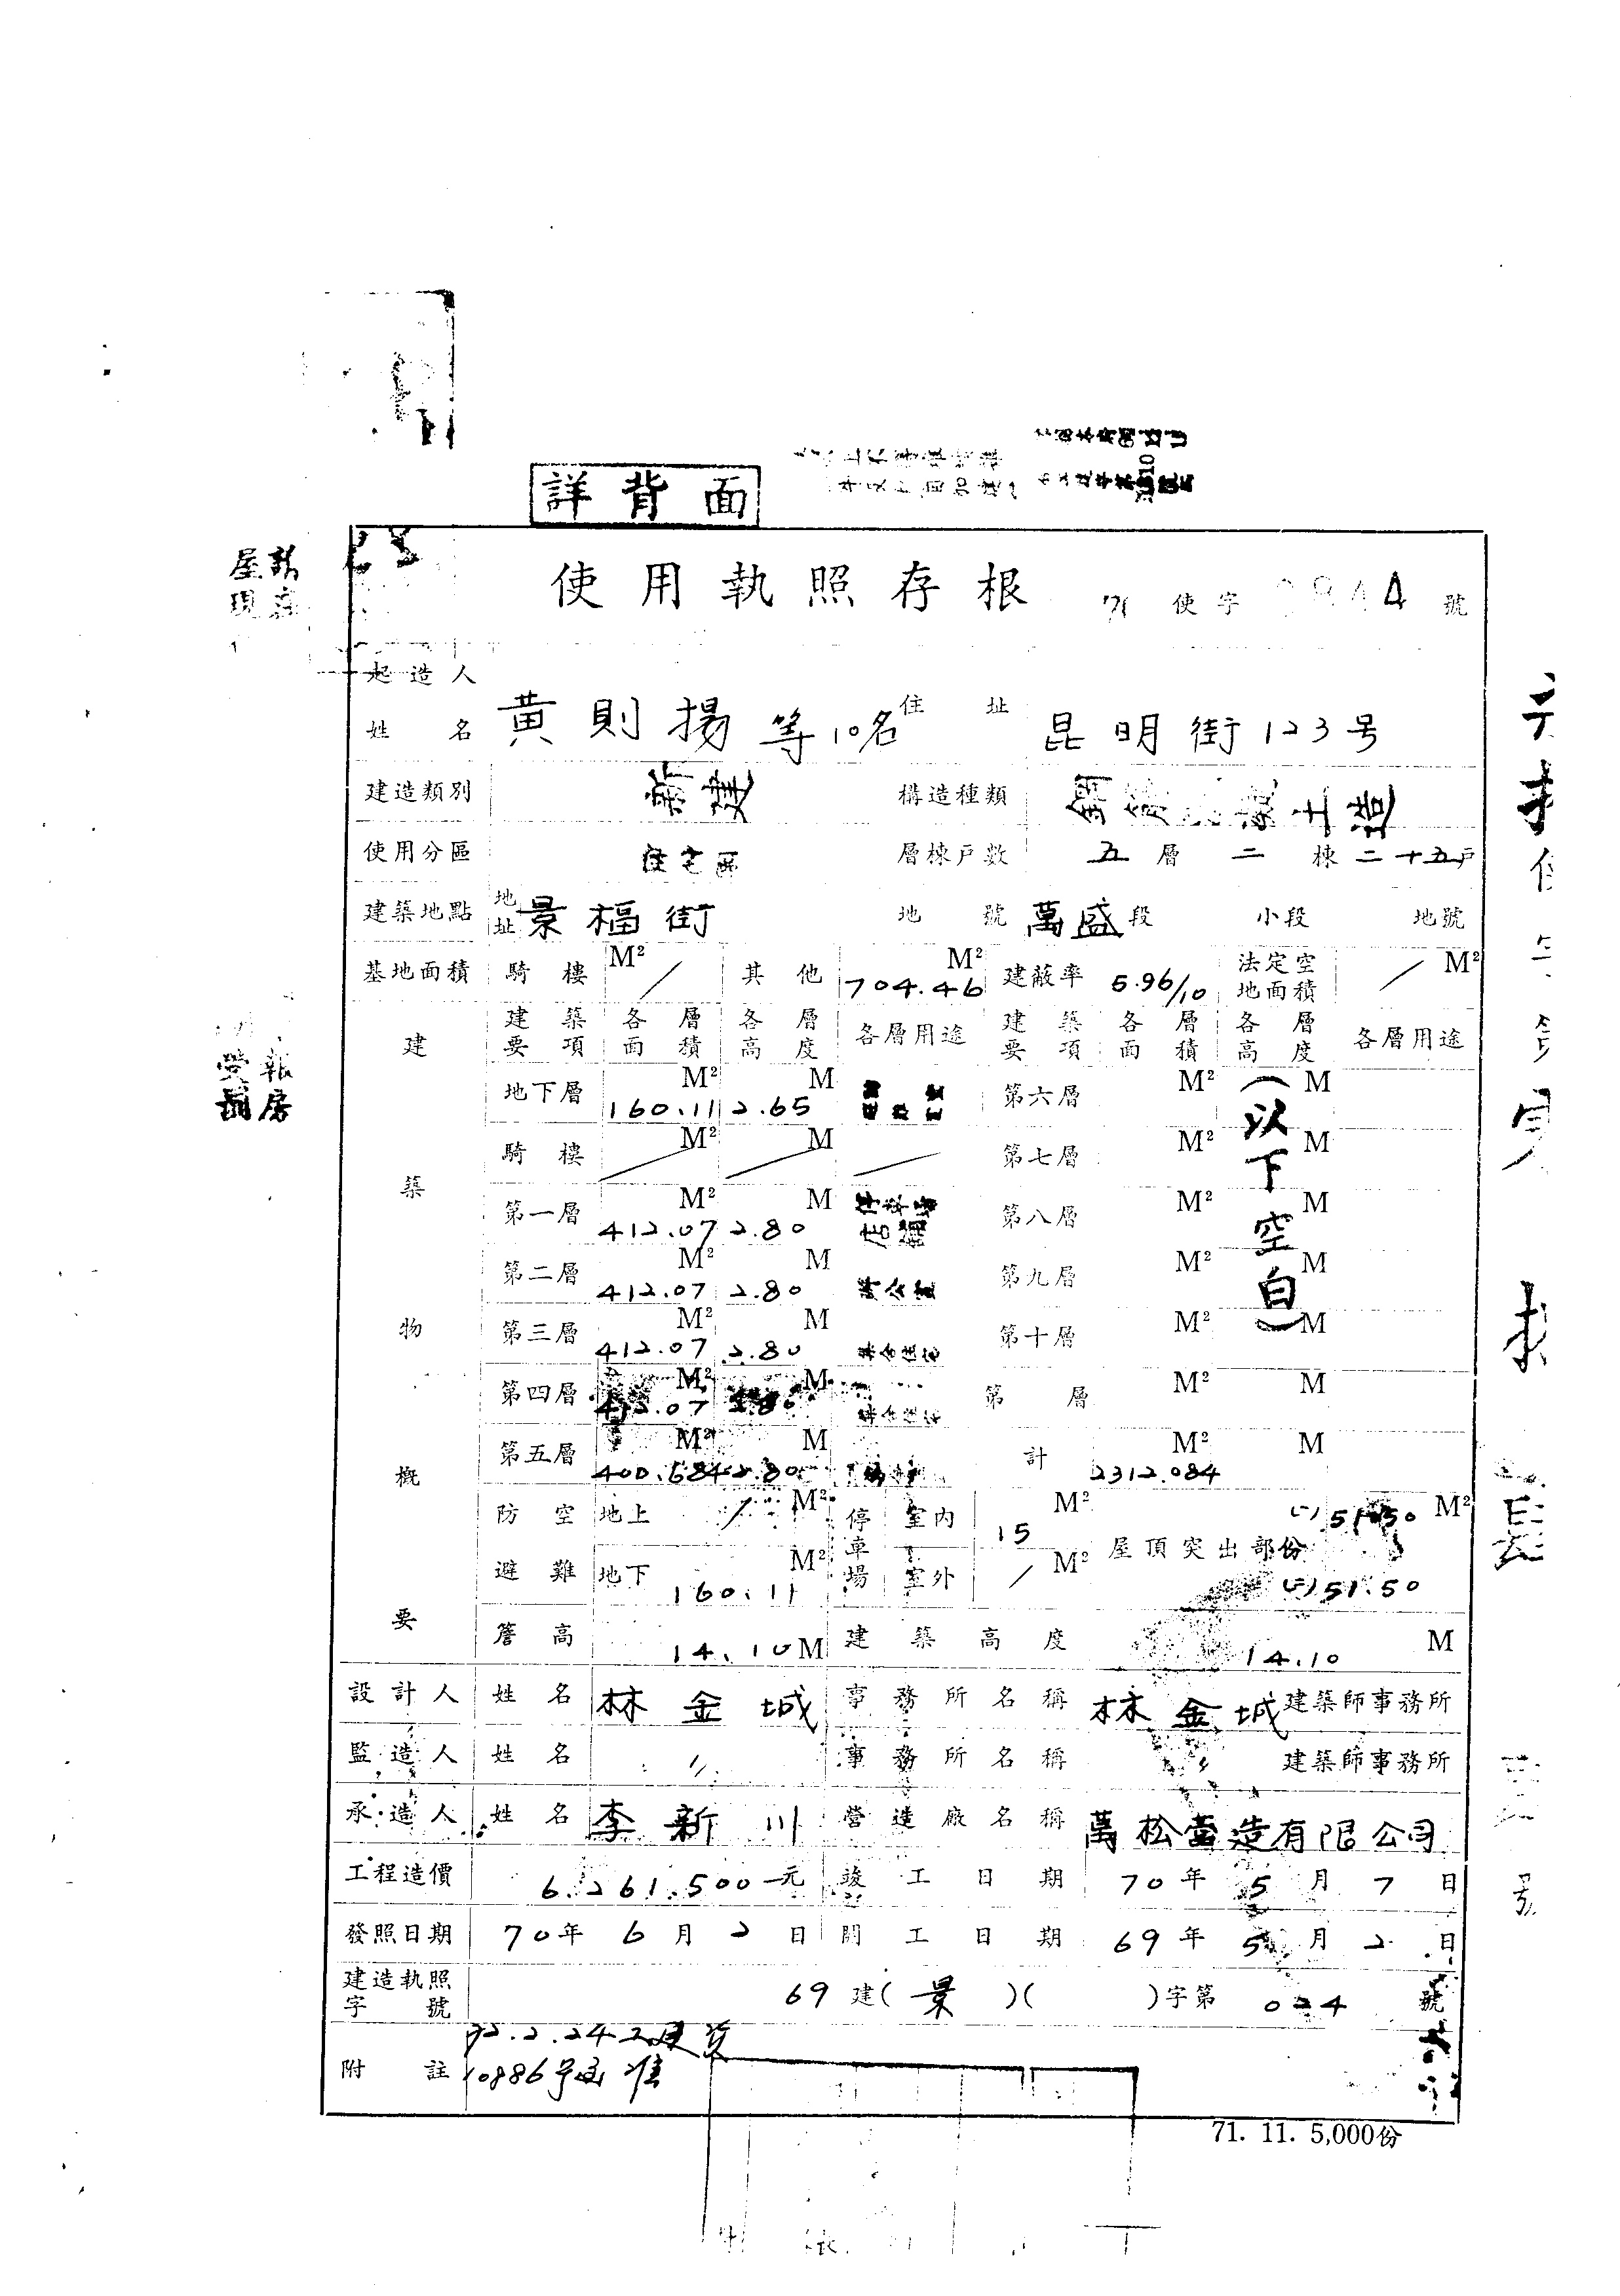 詳背面
使用執照存根 使字 號
起造人
姓名 黃則揚等10名 住址 昆明街123号
建造類別 新建 構造種類 鋼筋 土造
使用分區 住宅區 層棟戶數 五層二棟二十五戶
建築地點 地址 景福街 地號 萬盛段 小段 地號
基地面積 騎樓 M² / 其他 704.46 M² 建蔽率 5.96/10 法定空地面積 / M²
建築物概要
建築要項 各層面積 各層高度 各層用途 建築要項 各層面積 各層高度 各層用途
地下層 160.11 M² 2.65 M 第六層 M² M
騎樓 M² M 第七層 M² M
第一層 412.07 M² 2.80 M 店舖 第八層 M² M
第二層 412.07 M² 2.80 M 第九層 M² M
第三層 412.07 M² 2.80 M 第十層 M² M
(以下空白)
第四層 M² M 第 層 M² M
第五層 400.684 M² 2.80 M 計 2312.084 M² M
防空避難 地上 / M² 停車場 室內 15 M² 屋頂突出部份 51.50 M²
地下 160.11 M² 室外 / M² 51.50
簷高 14.10 M 建築高度 14.10 M
設計人 姓名 林金城 事務所名稱 林金城建築師事務所
監造人 姓名 〃 事務所名稱 〃 建築師事務所
承造人 姓名 李新川 營造廠名稱 萬松營造有限公司
工程造價 6.261.500元 竣工日期 70年5月7日
發照日期 70年6月2日 開工日期 69年5月2日
建造執照字號 69建(景)( )字第024號
附註 72.2.24
10886号函准
71. 11. 5,000份